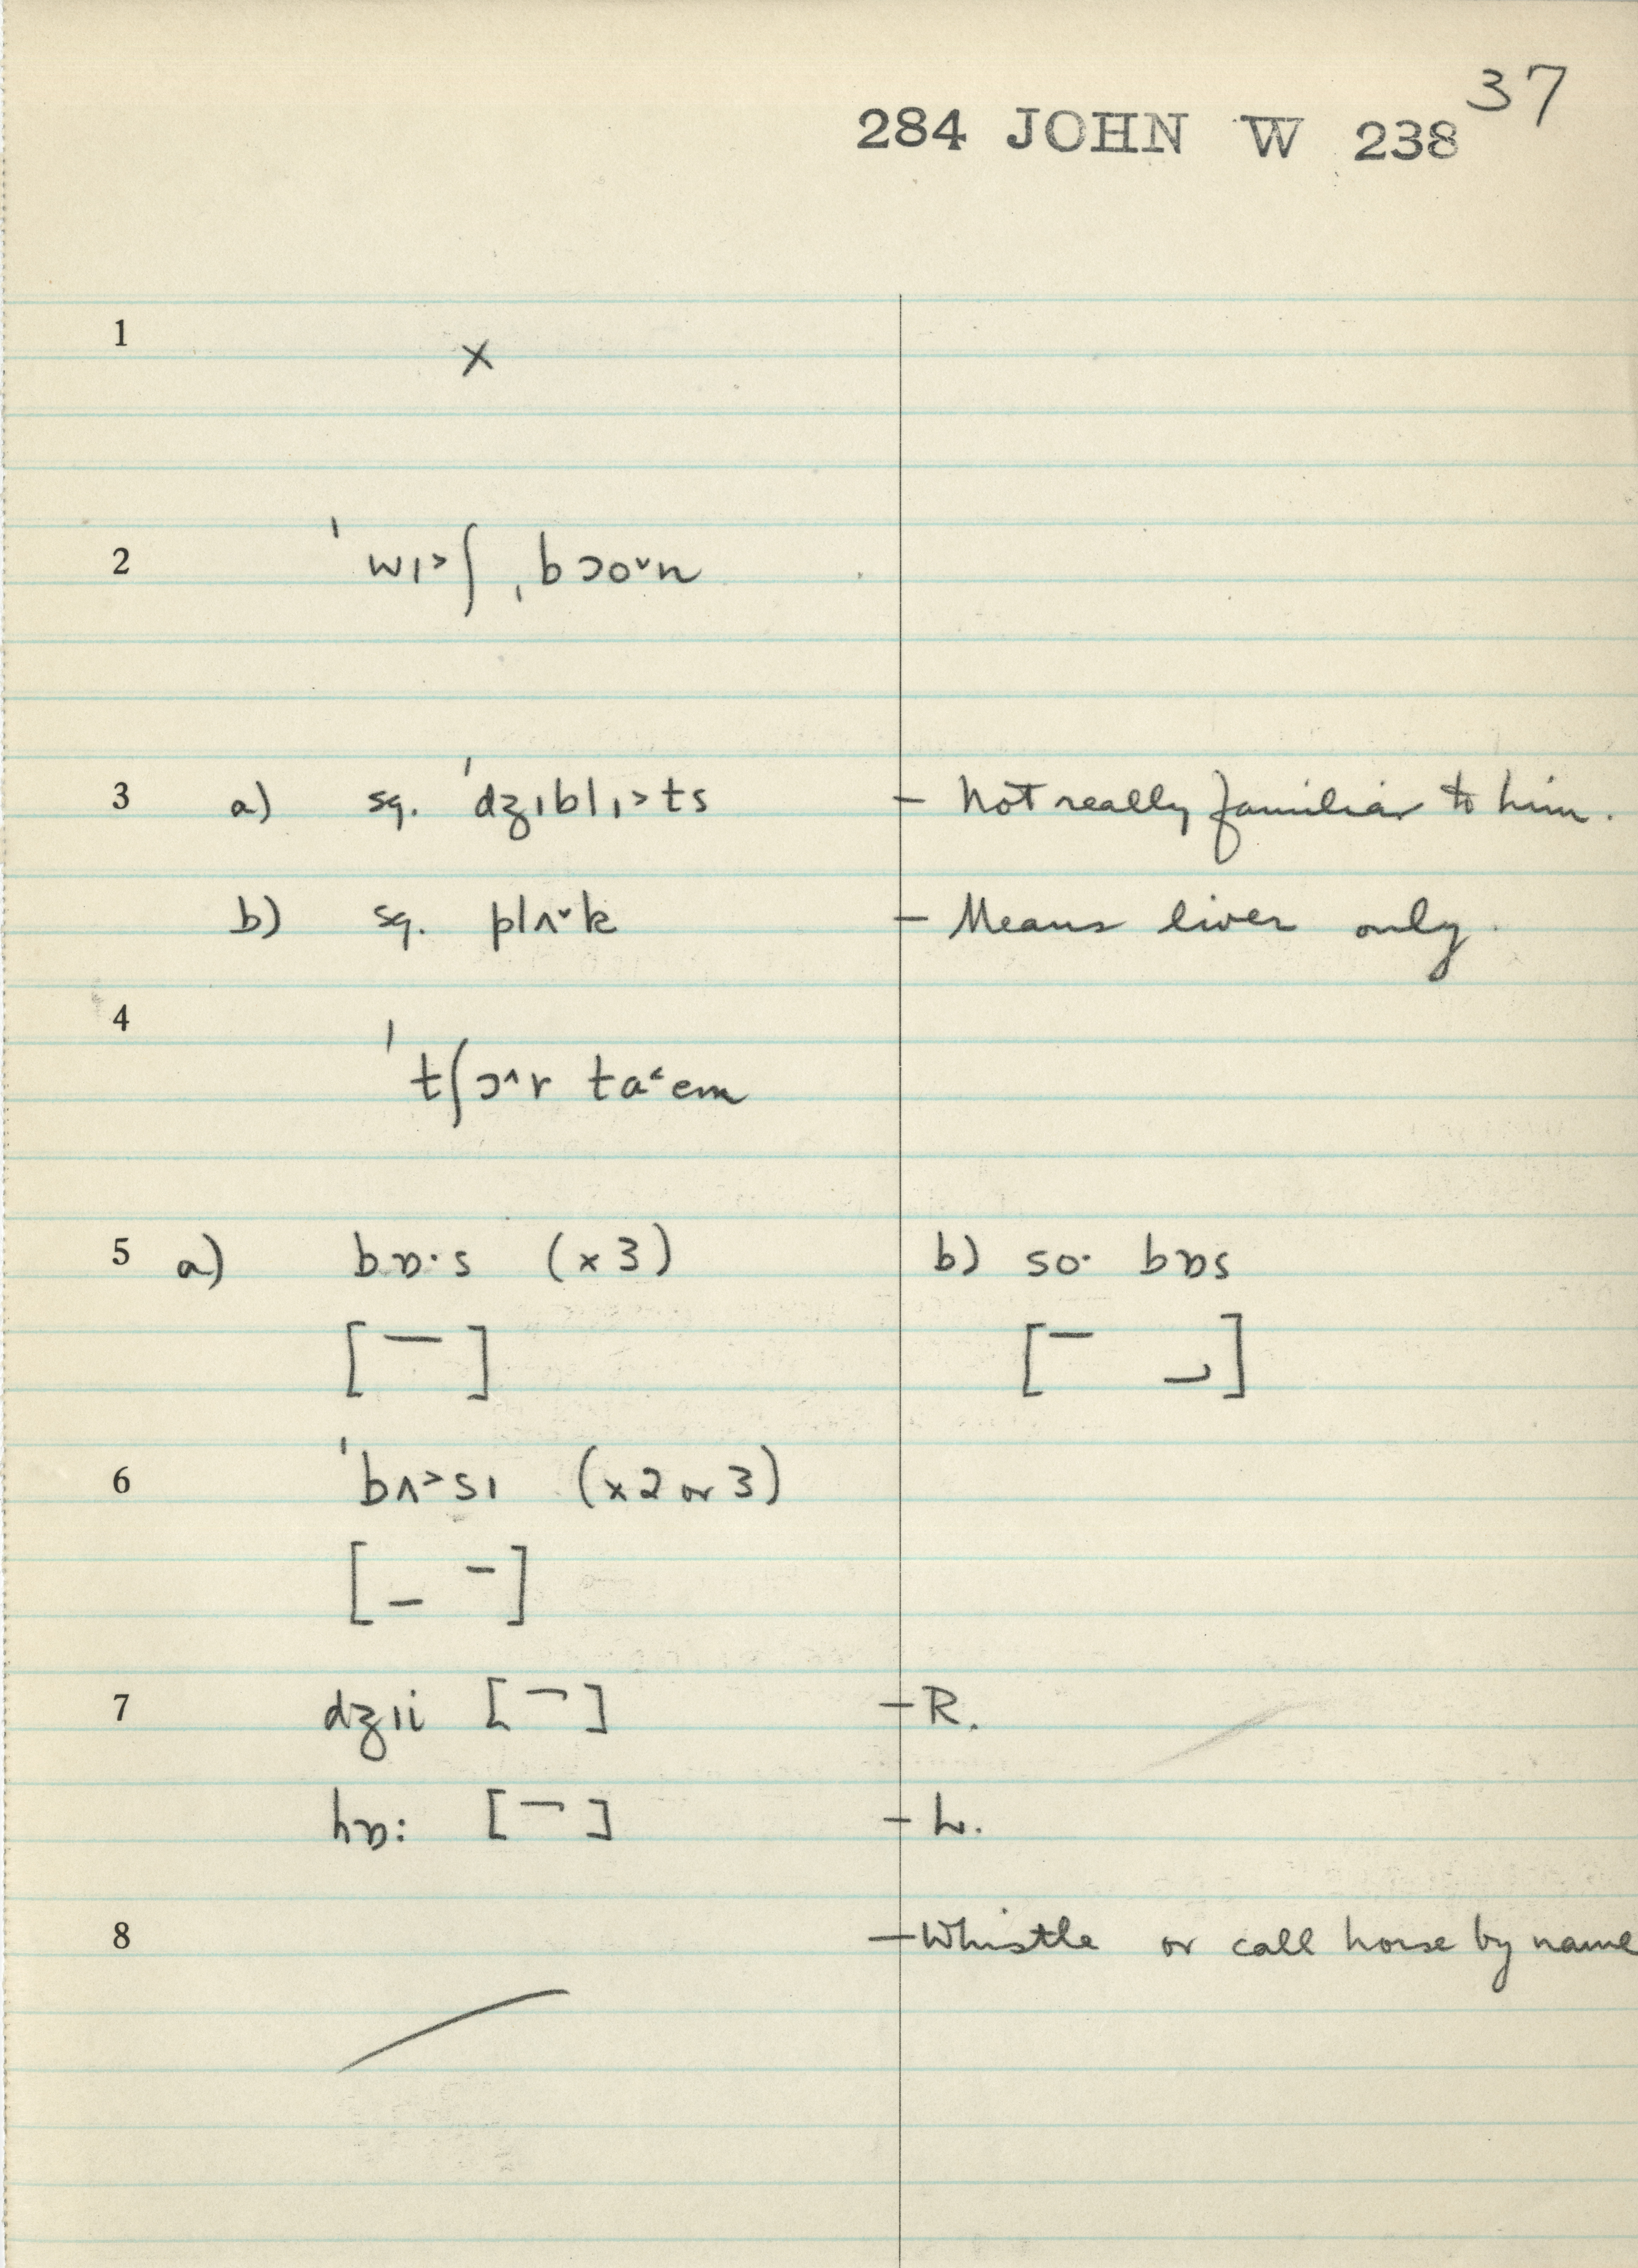 37
284 JOHN W 238
1 ×
2 ˈwɪ˃ʃ ˌbɔo˅n
3 a) sq. ˈdʒɪblɪ˃ts – Not really familiar to him.
b) sq. plʌ˅k – Means liver only.
4 ˈtʃɔ˄r ta˂em
5 a) bɒ·s (×3) b) so· bɒs
[ ¯ ] [ ¯ ]
6 ˈbʌ˃sɪ (×2 or 3)
[ _ ¯ ]
7 dʒɪi [ ¯ ] – R.
hɒ: [ ¯ ] – L.
8 – Whistle or call horse by name